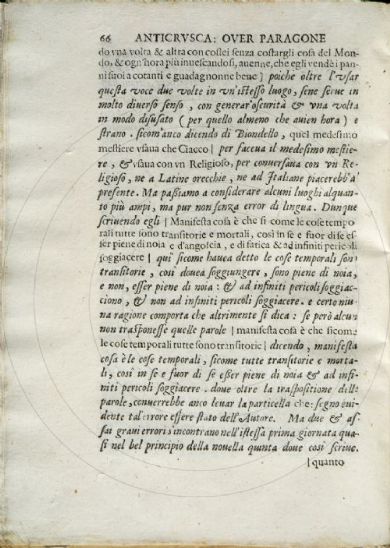 66 ANTICRVSCA: OVER PARAGONE
do vna volta & altra con costei senza costargli cosa del Mon-
do, & ogn'hora più inuescandosi, auenne, che egli vendè i pan-
ni suoi a cotanti e guadagnonne bene] poiche oltre l'vsar
questa voce due volte in vn'istesso luogo, sene serue in
molto diuerso senso, con generar'oscurità & vna volta
in modo disusato (per quello almeno che auien hora) e
strano. sicom'anco dicendo di Biondello, quel medesimo
mestiere vsaua che Ciacco] per faceua il medesimo mestie-
re, & vsaua con vn Religioso, per conuersaua con vn Re-
ligioso, ne a Latine orecchie, ne ad Italiane piacerebb'al
presente. Ma passiamo a considerare alcuni luoghi alquan-
to più ampi, ma pur non senza error di lingua. Dunque
scriuendo egli [Manifesta cosa è che si come le cose tempo
rali tutte sono transitorie e mortali, così in se e fuor di se es-
ser piene di noia e d'angoscia, e di fatica & ad infiniti pericoli
soggiacere] qui sicome hauea detto le cose temporali son
transitorie, così douea soggiungere, sono piene di noia,
e non, esser piene di noia: & ad infiniti pericoli soggiac-
ciono, & non ad infiniti pericoli soggiacere. e certo niu-
na ragione comporta che altrimente si dica: se però alcun
non trasponesse quelle parole [manifesta cosa è che sicome
le cose temporali tutte sono transitorie] dicendo, manifesta
cosa è le cose temporali, sicome tutte transitorie e morta-
li, così in se e fuor di se esser piene di noia & ad infi-
niti pericoli soggiacere. doue oltre la trasposizione delle
parole, conuerrebbe anco leuar la particella che: segno eui-
dente tal errore essere stato dell'Autore. Ma due & as-
sai graui errori s'incontrano nell'istessa prima giornata qua-
si nel bel principio della nouella quinta doue così scriue.
[quanto